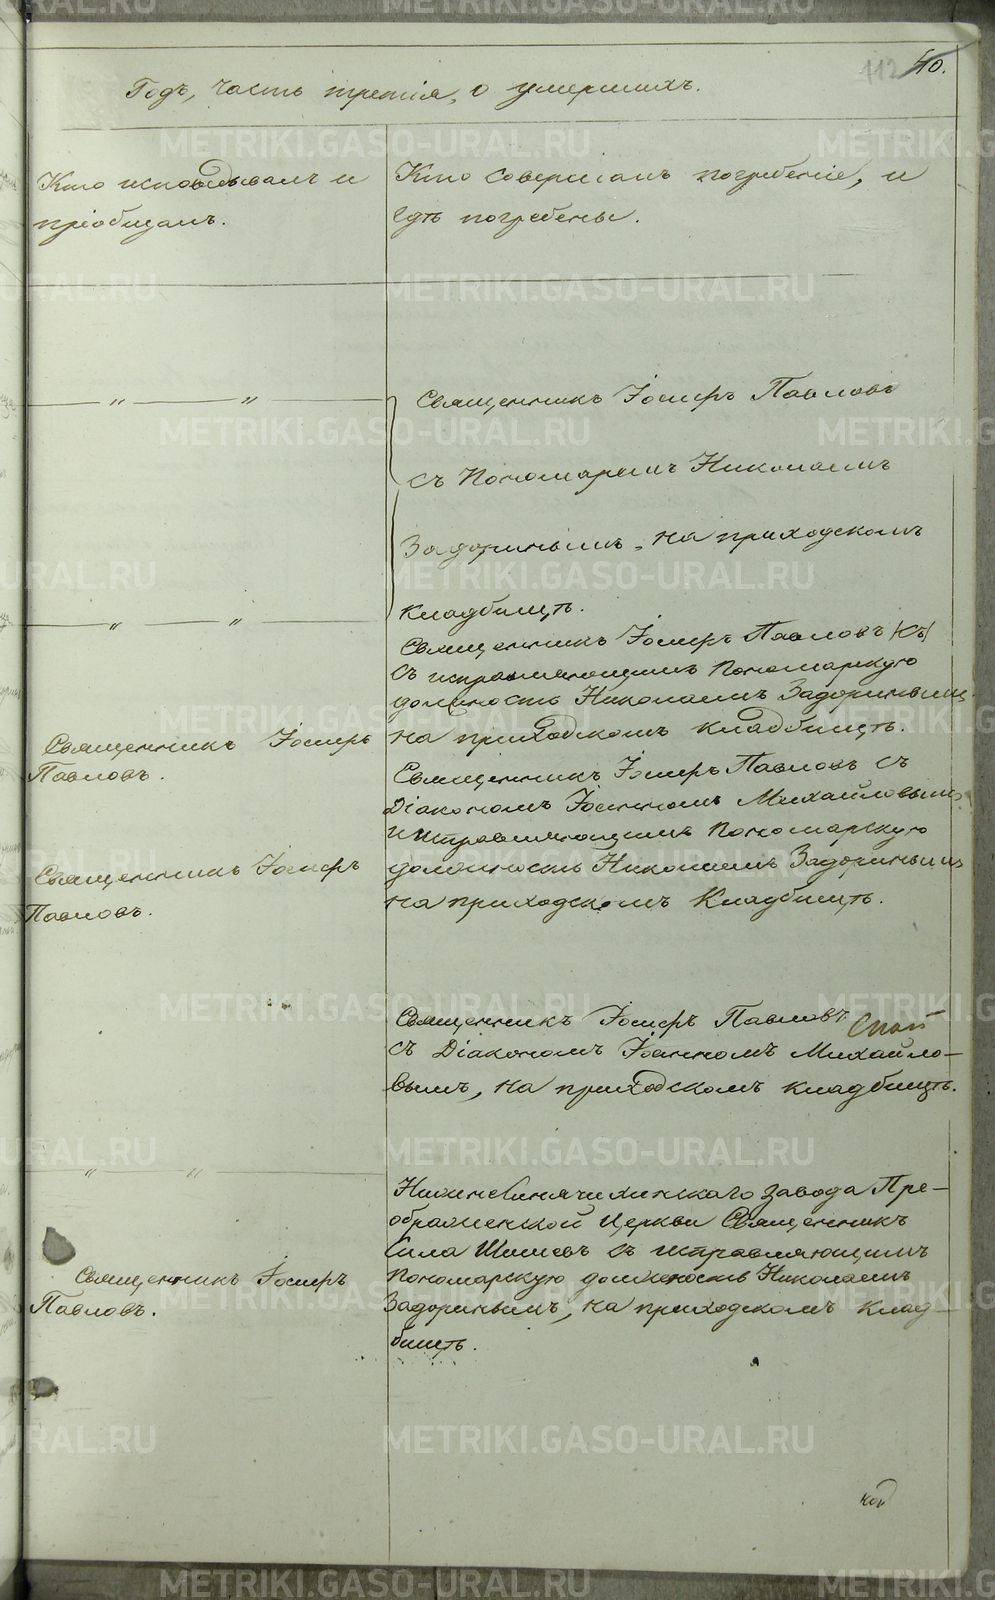 112 40.
Годъ, часть третія, о умершихъ.
Кто исповѣдывалъ и
пріобщалъ.
Кто совершалъ погребеніе, и
гдѣ погребены.
— " — " —
Священникъ Іосифъ Павловъ
съ Пономаремъ Николаемъ
Задоринымъ, на приходскомъ
кладбищѣ.
— " — " —
Священникъ Іосифъ Павловъ (съ)
съ исправляющимъ Пономарскую
должность Николаемъ Задоринымъ,
на приходскомъ кладбищѣ.
Священникъ Іосифъ
Павловъ.
Священникъ Іосифъ Павловъ съ
Діакономъ Іоанномъ Михайловымъ
и исправляющимъ Пономарскую
должность Николаемъ Задоринымъ
на приходскомъ Кладбищѣ.
Священникъ Іосифъ
Павловъ.
Священникъ Іосифъ Павловъ
съ Діакономъ Іоанномъ Михайло-
вымъ, на приходскомъ кладбищѣ.
— " — " —
Нижнесинячихинскаго завода Пре-
ображенской церкви Священникъ
Сила Шишевъ съ исправляющимъ
Пономарскую должность Николаемъ
Задоринымъ, на приходскомъ клад-
бищѣ.
Священникъ Іосифъ
Павловъ.
METRIKI.GASO-URAL.RU